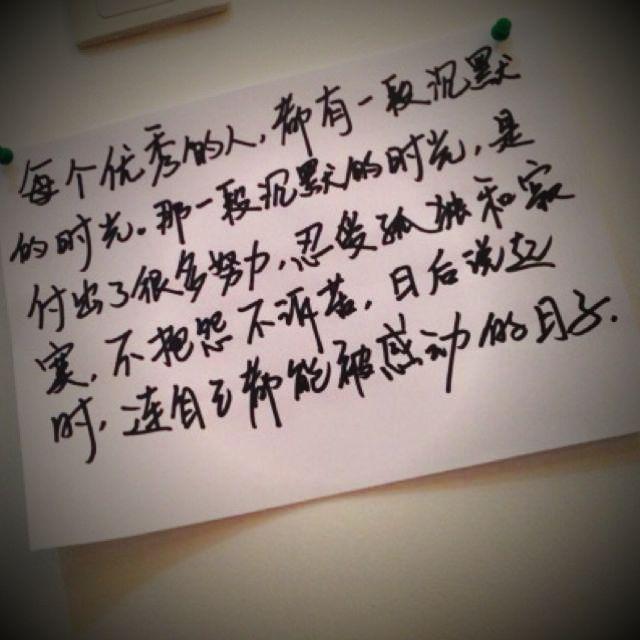 每个优秀的人，都有一段沉默
的时光。那一段沉默的时光，是
付出了很多努力，忍受孤独和寂
寞，不抱怨不诉苦，日后说起
时，连自己都能被感动的日子.